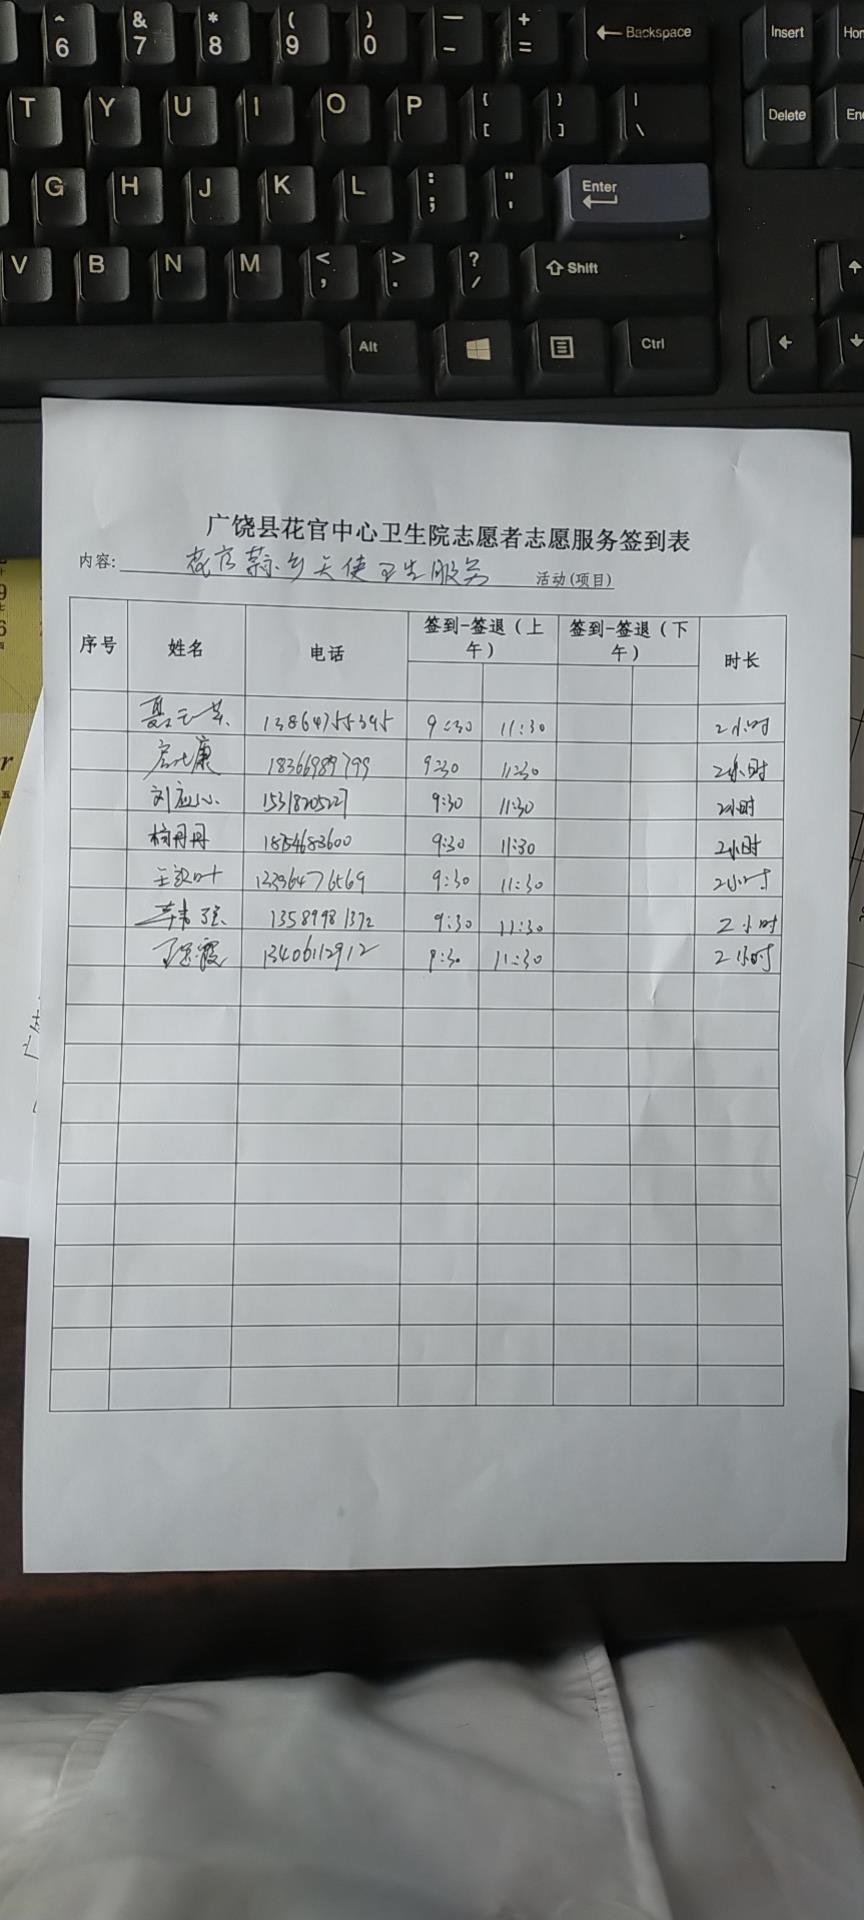 ^ & * ( ) — +
6 7 8 9 0 - = Backspace Insert Hom
T Y U I O P { [ } ] | \ Delete En
G H J K L : ; " ' Enter
V B N M < , > . ? / Shift
Alt Ctrl
广饶县花官中心卫生院志愿者志愿服务签到表
内容: 花官蒜乡天使卫生服务 活动(项目)
序号 姓名 电话 签到-签退（上午） 签到-签退（下午） 时长
13864755395 9:30 11:30 2小时
康 18366989799 9:30 11:30 2小时
刘应心 15318205227 9:30 11:30 2小时
丹丹 18754683600 9:30 11:30 2小时
王 13396476569 9:30 11:30 2小时
13589981372 9:30 11:30 2小时
霞 13406112912 9:30 11:30 2小时